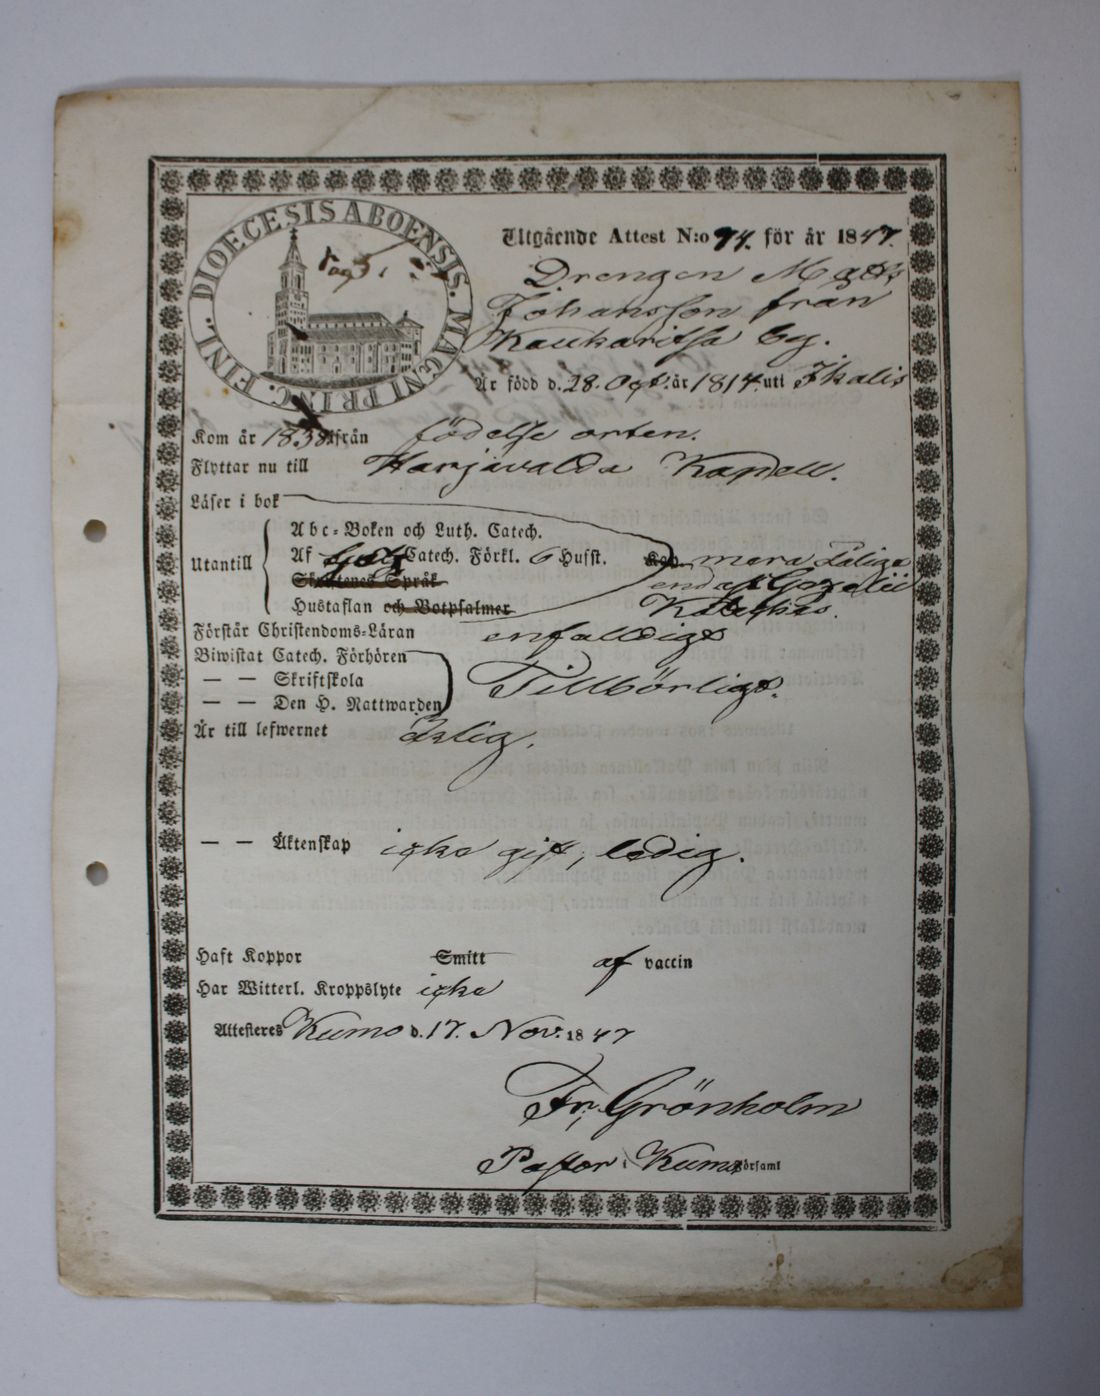 DIOECESIS ABOENSIS. MAGNI PRINC. FINL.
Utgående Attest N:o 74. för år 1847.
Drengen Matts
Johansson från
Kaukaritsa by.
Är född d. 28. Oct. år 1814 uti Ikalis
Kom år 1838 ifrån födelse orten.
Flyttar nu till Harjavalda Kapell.
Läser i bok
Abc-Boken och Luth. Catech.
Utantill Af Catech. Förkl. 6 Hufst. mera
Skriftenes Språk endast Gezelii
Hustaflan och Botpsalmer
Förstår Christendoms-Läran enfaldigt
Biwistat Catech. Förhören
— — Skriftskola Tillbörligt.
— — Den H. Nattwarden
Är till lefwernet ärlig.
— — Äktenskap icke gift, ledig.
Haft Koppor Smitt af vaccin
Har Witterl. Kroppslyte icke
Attesteres Kumo d. 17. Nov. 1847
Fr. Grönholm
Pastor i Kumo Församl